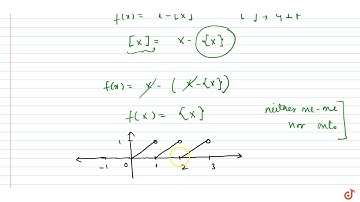 f(x) = x-[x] [ ] → G I F
[x] = x - {x}
f(x) = x - (x - {x})
f(x) = {x}
neither one-one
nor onto
1
-1 0 1 2 3